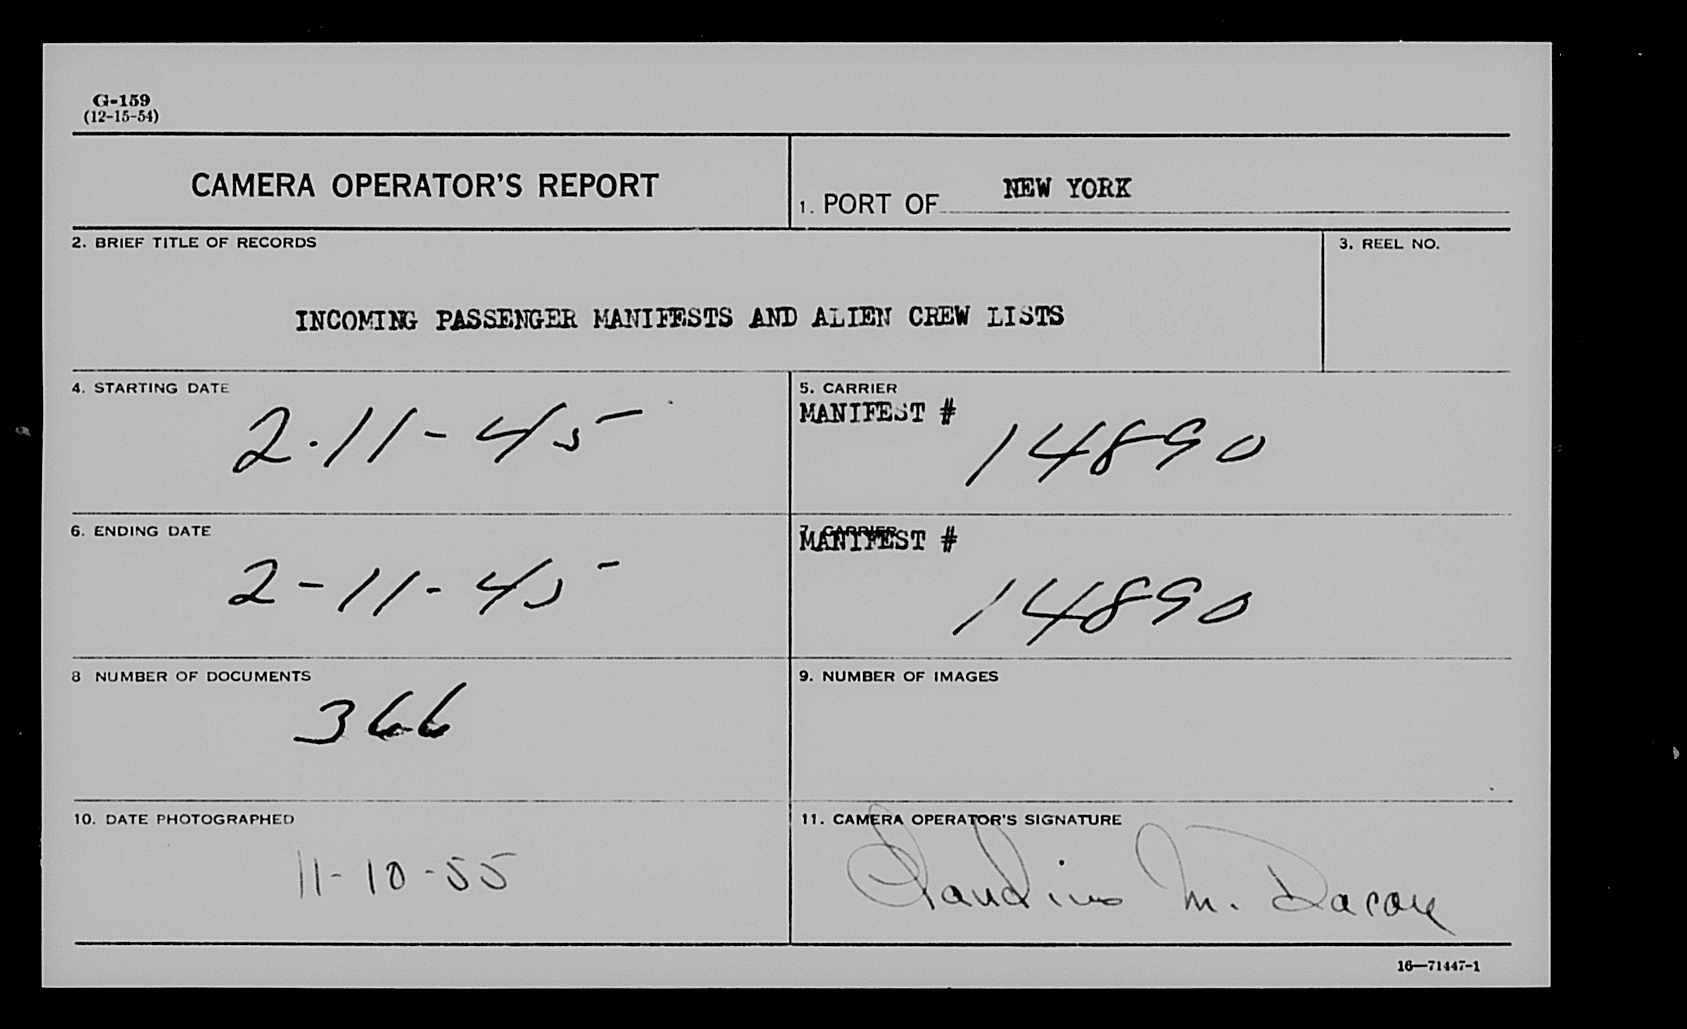 G-159
(12-15-54)
CAMERA OPERATOR'S REPORT
1. PORT OF NEW YORK
2. BRIEF TITLE OF RECORDS
3. REEL NO.
INCOMING PASSENGER MANIFESTS AND ALIEN CREW LISTS
4. STARTING DATE
2-11-45
5. CARRIER
MANIFEST #
14890
6. ENDING DATE
2-11-45
7. CARRIER
MANIFEST #
14890
8 NUMBER OF DOCUMENTS
366
9. NUMBER OF IMAGES
10. DATE PHOTOGRAPHED
11-10-55
11. CAMERA OPERATOR'S SIGNATURE
Claudius M.
16—71447-1